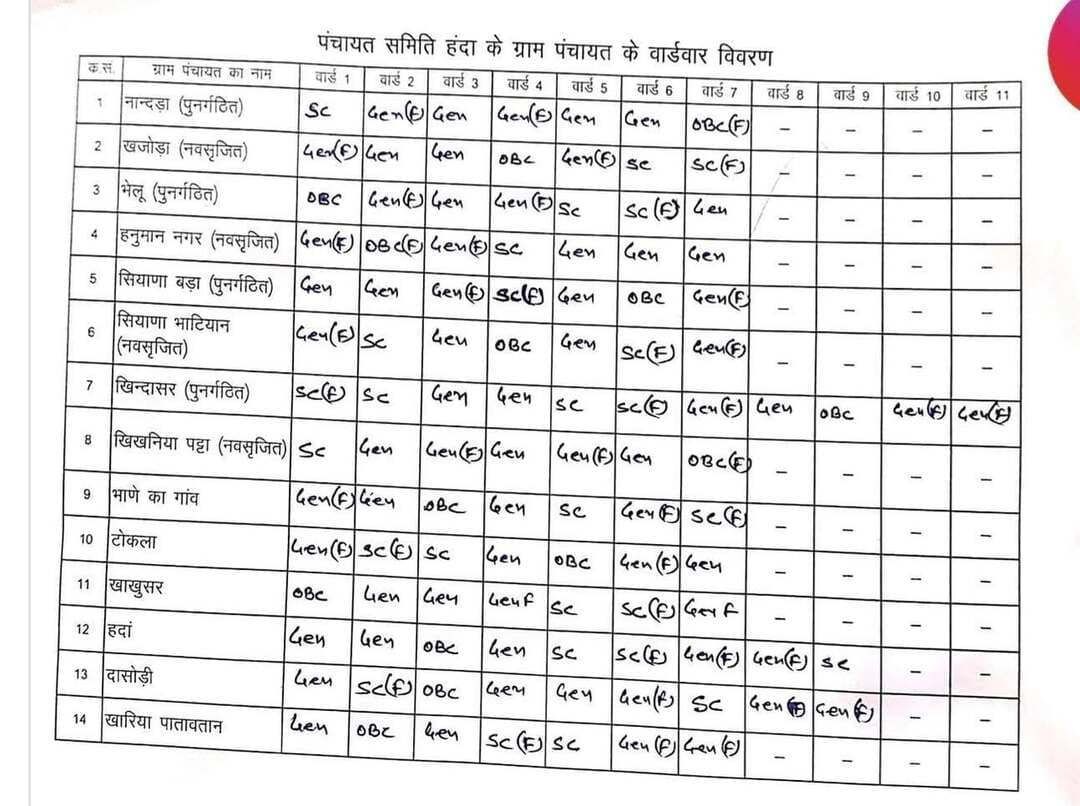 पंचायत समिति हंदा के ग्राम पंचायत के वार्डवार विवरण
क.सं. ग्राम पंचायत का नाम वार्ड 1 वार्ड 2 वार्ड 3 वार्ड 4 वार्ड 5 वार्ड 6 वार्ड 7 वार्ड 8 वार्ड 9 वार्ड 10 वार्ड 11
1 नान्दड़ा (पुनर्गठित) SC Gen(F) Gen Gen(F) Gen Gen OBC(F) - - - -
2 खजोड़ा (नवसृजित) Gen(F) Gen Gen OBC Gen(F) SC SC(F) - - - -
3 भेलू (पुनर्गठित) OBC Gen(F) Gen Gen(F) SC SC(F) Gen - - - -
4 हनुमान नगर (नवसृजित) Gen(F) OBC(F) Gen(F) SC Gen Gen Gen - - - -
5 सियाणा बड़ा (पुनर्गठित) Gen Gen Gen(F) SC(F) Gen OBC Gen(F) - - - -
6 सियाणा भाटियान (नवसृजित) Gen(F) SC Gen OBC Gen SC(F) Gen(F) - - - -
7 खिन्दासर (पुनर्गठित) SC(F) SC Gen Gen SC SC(F) Gen(F) Gen OBC Gen(F) Gen(F)
8 खिखनिया पट्टा (नवसृजित) SC Gen Gen(F) Gen Gen(F) Gen OBC(F) - - - -
9 भाणे का गांव Gen(F) Gen OBC Gen SC Gen(F) SC(F) - - - -
10 टोकला Gen(F) SC(F) SC Gen OBC Gen(F) Gen - - - -
11 खाखुसर OBC Gen Gen Gen F SC SC(F) Gen F - - - -
12 हदां Gen Gen OBC Gen SC SC(F) Gen(F) Gen(F) SC - -
13 दासोड़ी Gen SC(F) OBC Gen Gen Gen(F) SC Gen(F) Gen(F) - -
14 खारिया पातावतान Gen OBC Gen SC(F) SC Gen(F) Gen(F) - - - -